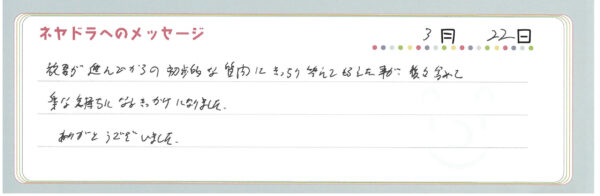 ネヤドラへのメッセージ
3月 22日
教習が進んでからの初歩的な質問にきっちり答えて
楽な気持ちになるきっかけになりました。
ありがとうございました。